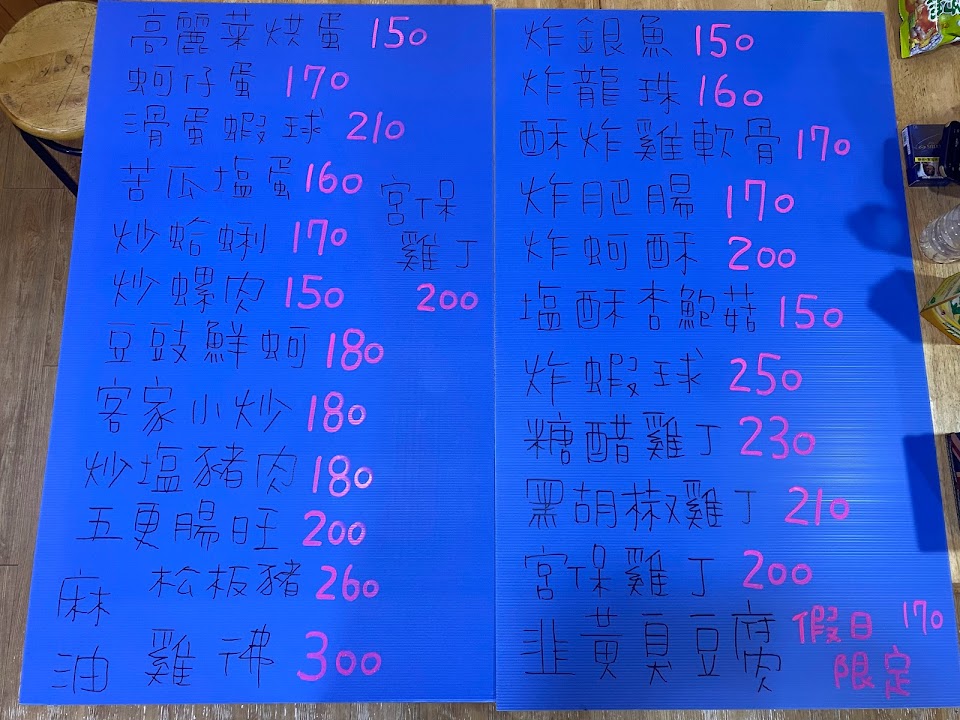 高麗菜烘蛋 150
蚵仔蛋 170
滑蛋蝦球 210
苦瓜塩蛋 160
炒蛤蜊 170
炒螺肉 150
豆豉鮮蚵 180
客家小炒 180
炒塩豬肉 180
五更腸旺 200
麻油
松板豬 260
雞佛 300
宮保
雞丁
200
炸銀魚 150
炸龍珠 160
酥炸雞軟骨 170
炸肥腸 170
炸蚵酥 200
塩酥杏鮑菇 150
炸蝦球 250
糖醋雞丁 230
黑胡椒雞丁 210
宮保雞丁 200
韭黃臭豆腐 假日限定 170